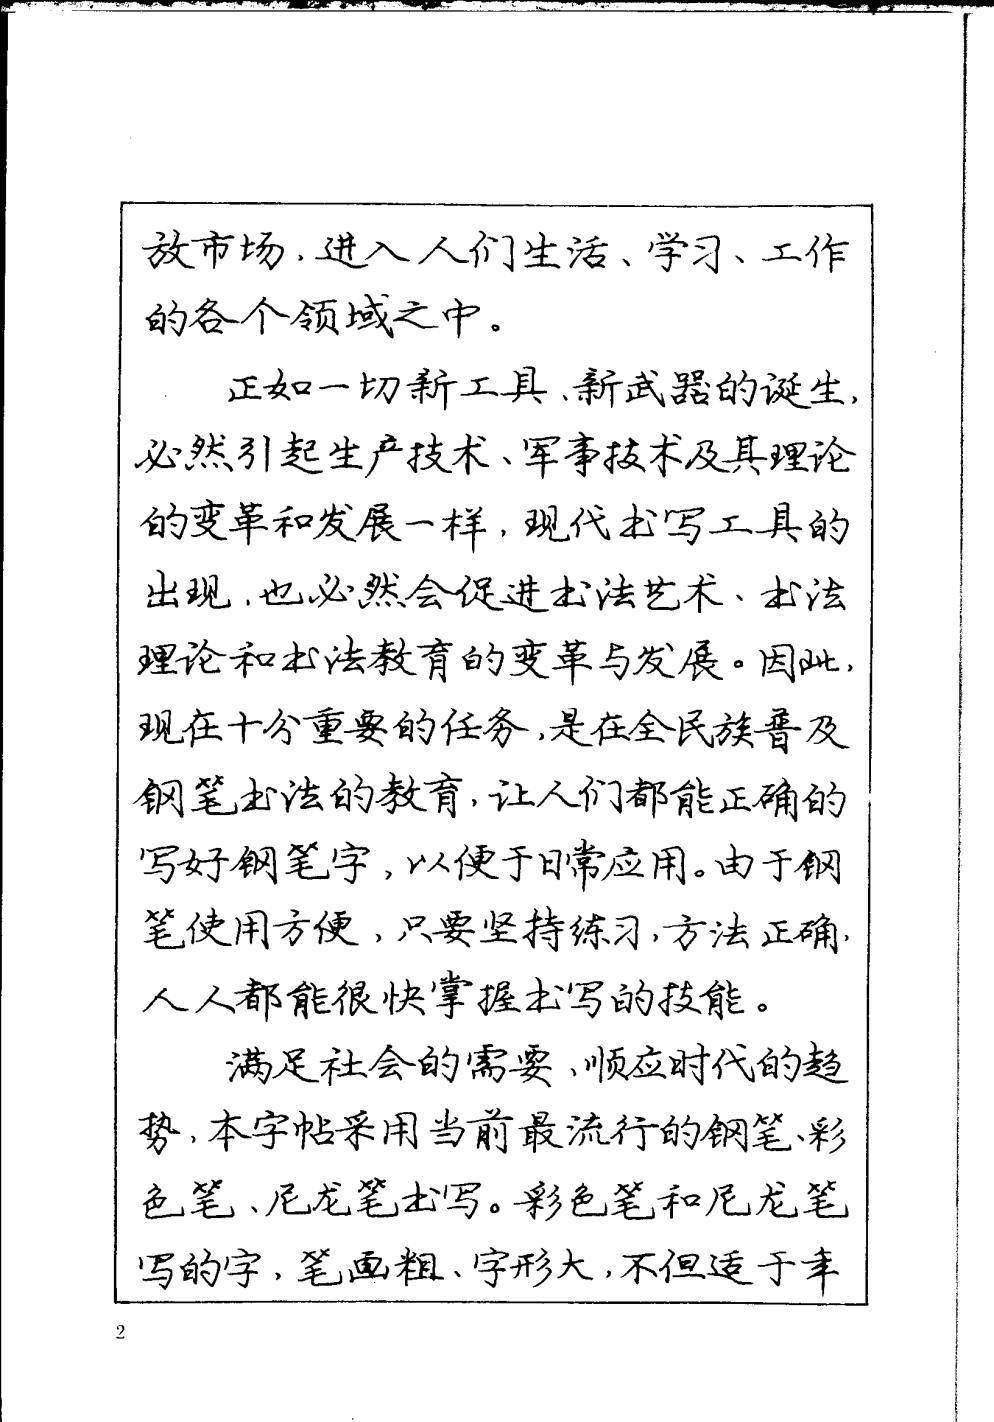 放市场，进入人们生活、学习、工作
的各个领域之中。
正如一切新工具、新武器的诞生，
必然引起生产技术、军事技术及其理论
的变革和发展一样，现代书写工具的
出现，也必然会促进书法艺术、书法
理论和书法教育的变革与发展。因此，
现在十分重要的任务，是在全民族普及
钢笔书法的教育，让人们都能正确的
写好钢笔字，以便于日常应用。由于钢
笔使用方便，只要坚持练习，方法正确，
人人都能很快掌握书写的技能。
满足社会的需要、顺应时代的趋
势，本字帖采用当前最流行的钢笔、彩
色笔、尼龙笔书写。彩色笔和尼龙笔
写的字，笔画粗、字形大，不但适于年
2